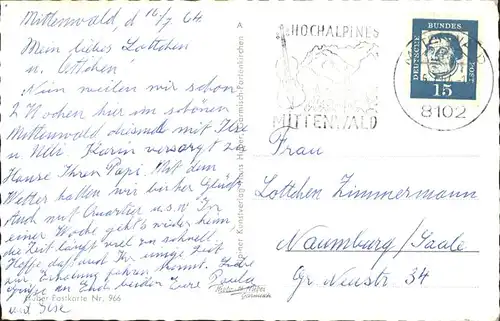 Mittenwald, d 10/7 64
Mein liebes Lottchen
u. Ottchen!
Nun weilen wir schon
2 Wochen hier im schönen
Mittenwald diesmal mit Ilse
u Ulli Karin versorgt zu
Hause Ihren Papi. Mit dem
Wetter hatten wir bisher Glück
Auch mit Quartier u.s.w In
einer Woche geht's wieder heim,
die Zeit läuft viel zu schnell.
Hoffe daß auch Ihr einige Zeit
zur Erholung fahren könnt.
Grüße an Euch beiden Eure Paula
und Ilse
Huber Postkarte Nr. 966
Garmisch-Partenkirchen
Foto: H. Huber
Garmisch
HOCHALPINES
MITTENWALD
8102
DEUTSCHE BUNDESPOST
15
Frau
Lottchen Zimmermann
Naumburg/Saale
Gr. Neustr 34